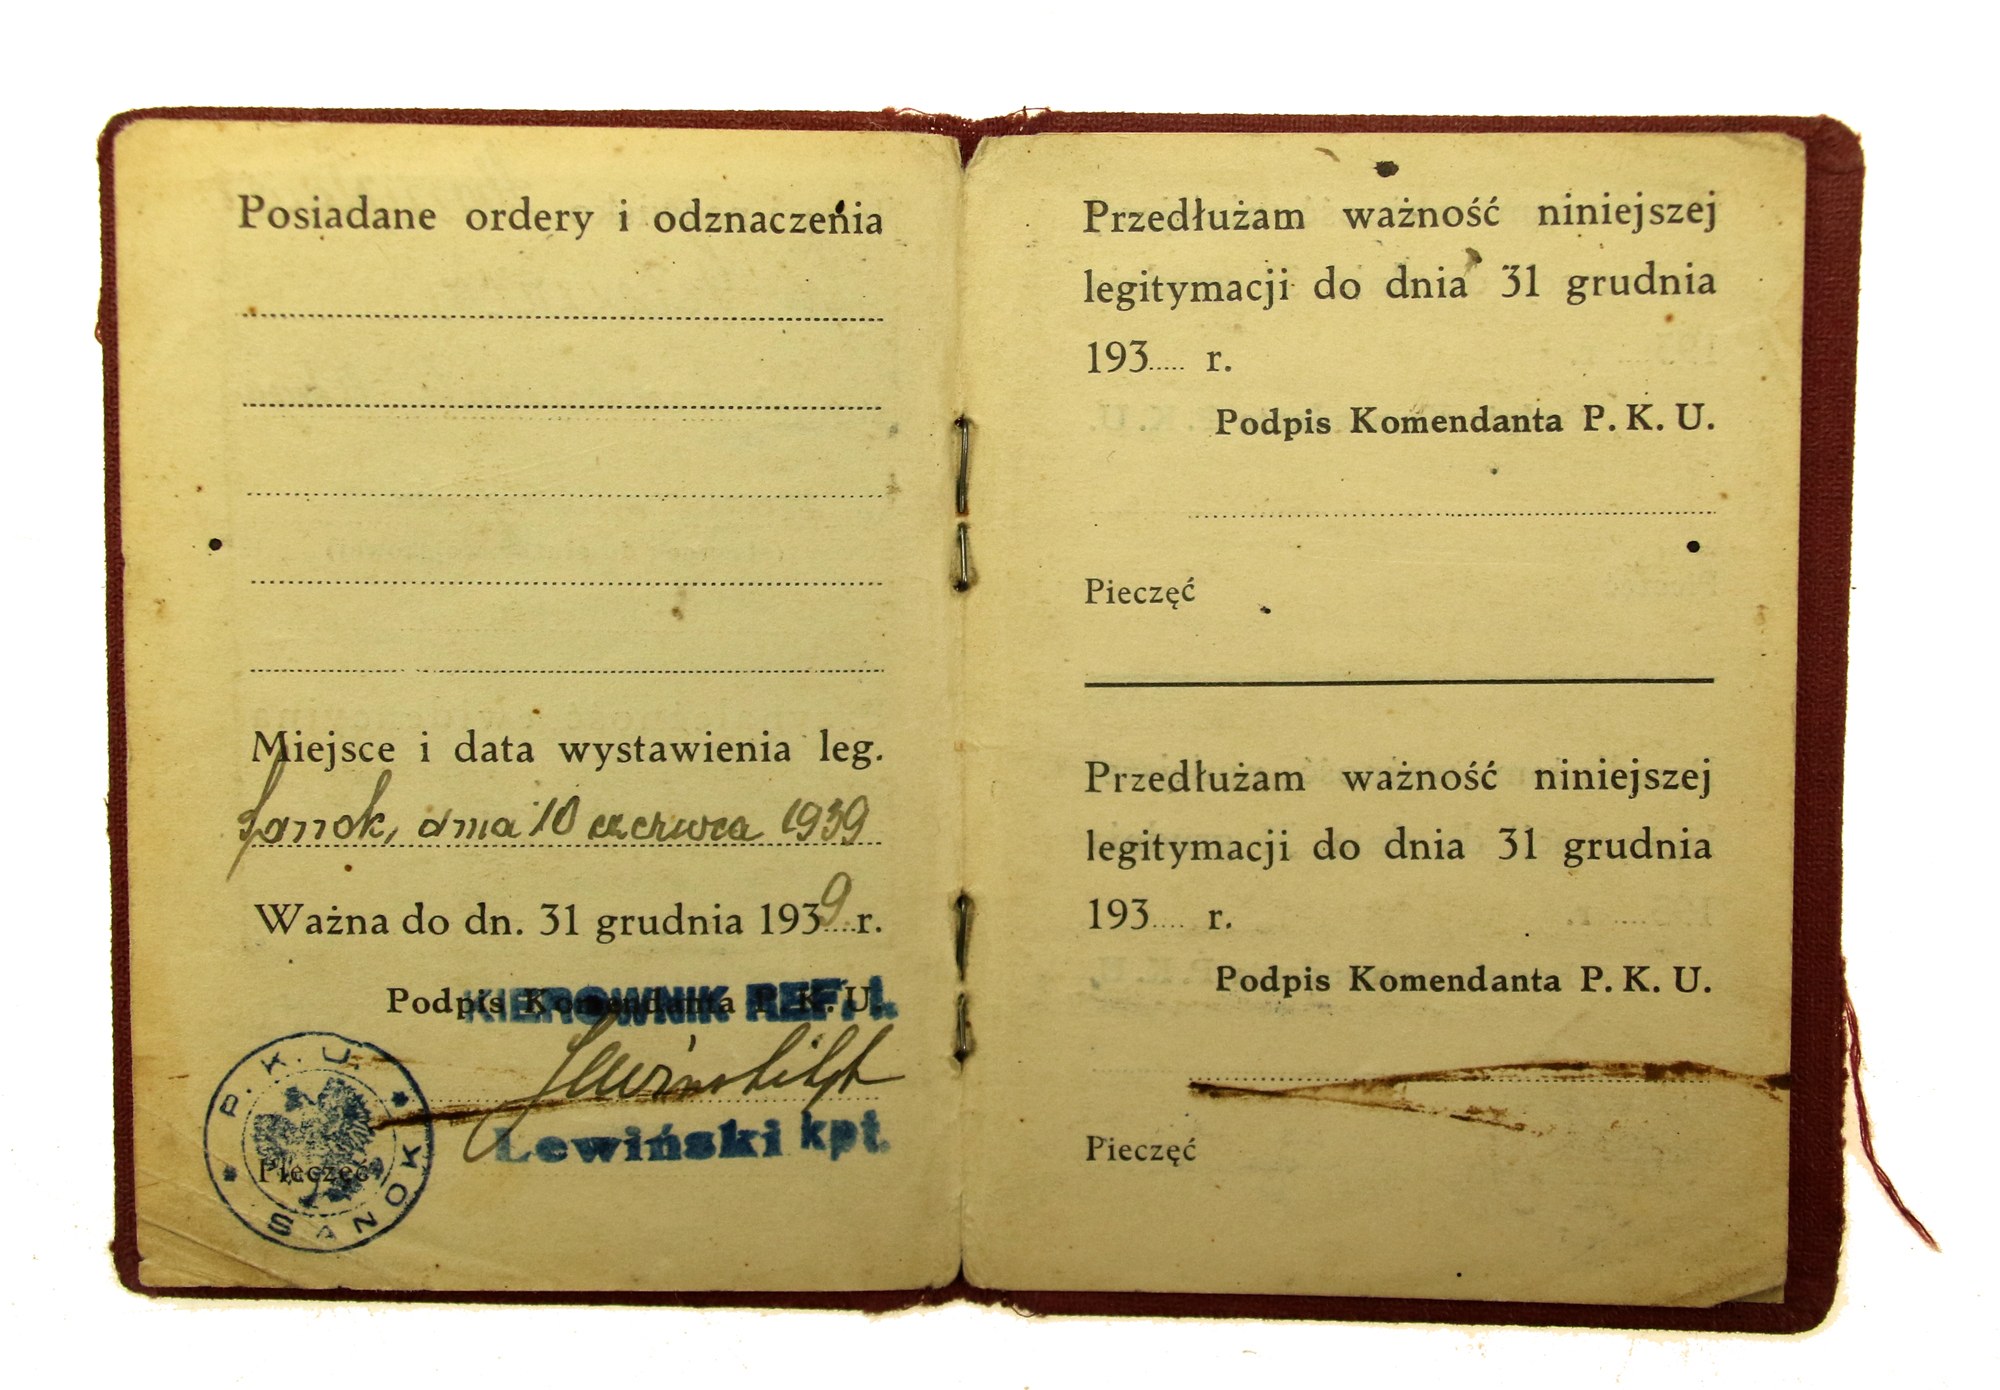 Posiadane ordery i odznaczenia
Miejsce i data wystawienia leg.
Sanok, dnia 10 czerwca 1939
Ważna do dn. 31 grudnia 1939 r.
Podpis Komendanta P. K. U.
KIEROWNIK REF. I.
Lewiński kpt.
P. K. U. * SANOK *
Pieczęć
Przedłużam ważność niniejszej
legitymacji do dnia 31 grudnia
193..... r.
Podpis Komendanta P. K. U.
Pieczęć
Przedłużam ważność niniejszej
legitymacji do dnia 31 grudnia
193..... r.
Podpis Komendanta P. K. U.
Pieczęć